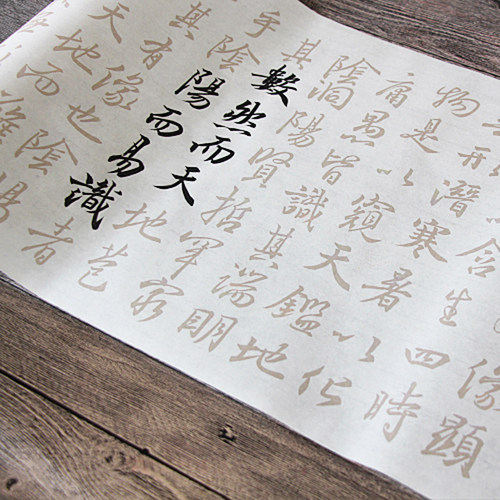 顯
含生四時
形潛寒暑以化
物是以窺天鑑地
庸愚皆識其端明
陰洞陽賢哲罕窮
其數然而天地苞
乎陰陽而易識者
其有像也陰陽
天地而難